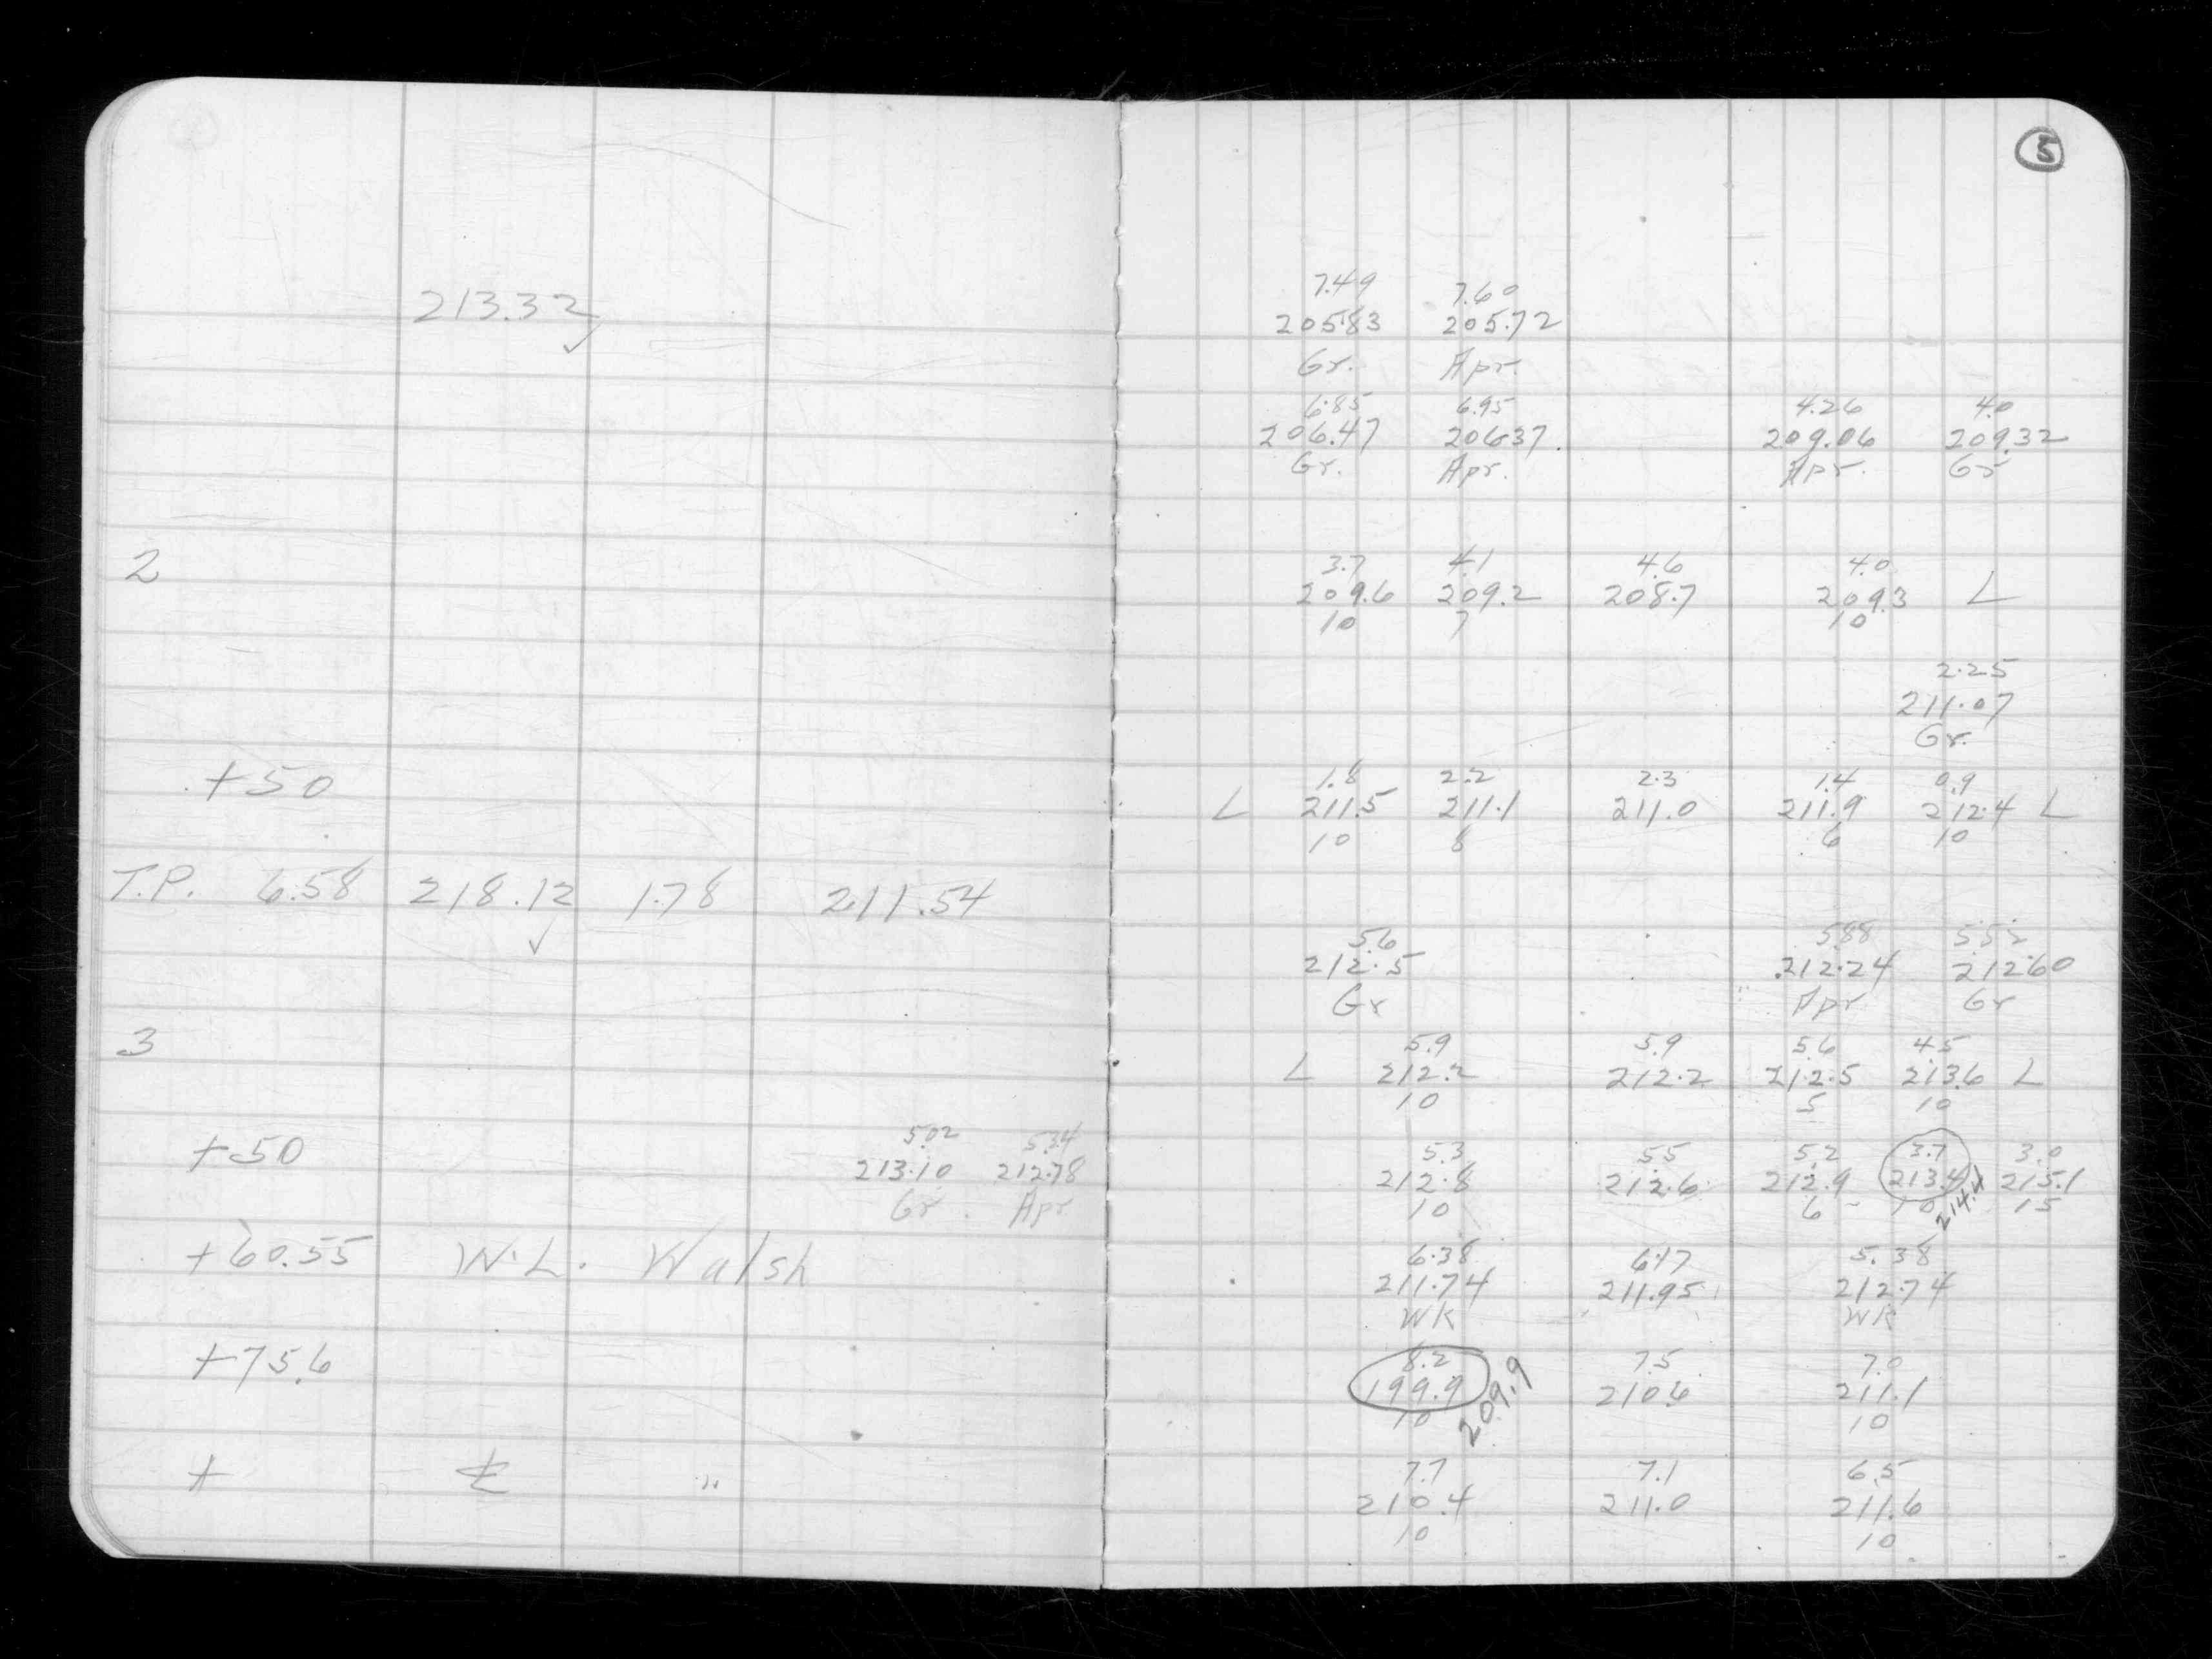 5
7.49 7.60
213.32 205.83 205.72
Gr. Apr.
6.85 6.95 4.26 4.0
206.47 206.37 209.06 209.32
Gr. Apr. Apr. Gr
3.7 4.1 4.6 4.0
2 209.6 209.2 208.7 209.3 L
10 7 10
2.25
211.07
Gr.
1.8 2.2 2.3 1.4 0.9
+50 L 211.5 211.1 211.0 211.9 212.4 L
10 8 6 10
T.P. 6.58 218.12 1.78 211.54
5.6 5.88 5.52
212.5 212.24 212.60
Gr Apr Gr
5.9 5.9 5.6 4.5
3 L 212.2 212.2 212.5 213.6 L
10 5 10
5.02 5.34 5.3 5.5 5.2 3.7 3.0
+50 213.10 212.78 212.8 212.6 212.9 213.4 215.1
Gr. Apr 10 6 10 214.4 15
6.38 6.17 5.38
+60.55 W.L. Walsh 211.74 211.95 212.74
WK WK
8.2 7.5 7.0
+75.6 199.9 210.6 211.1
10 209.9 10
7.7 7.1 6.5
+ ℄ " 210.4 211.0 211.6
10 10